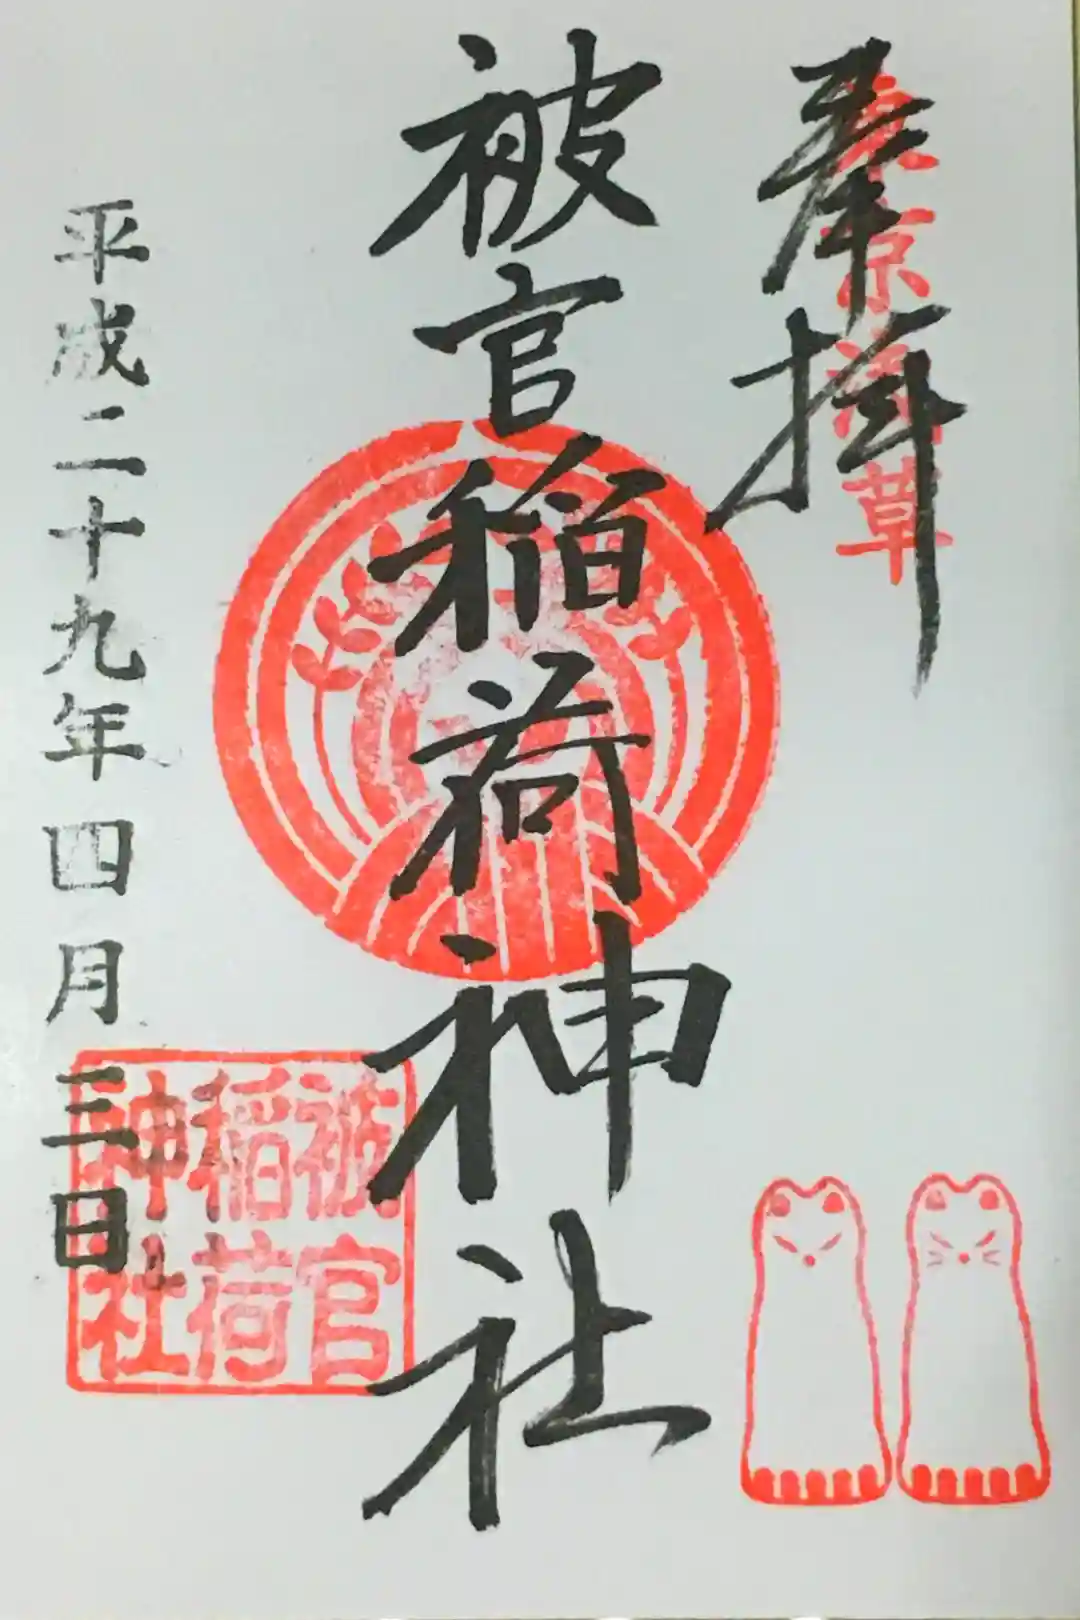 奉拝
東京浅草
被官稲荷神社
平成二十九年四月三日
被官
稲荷
神社